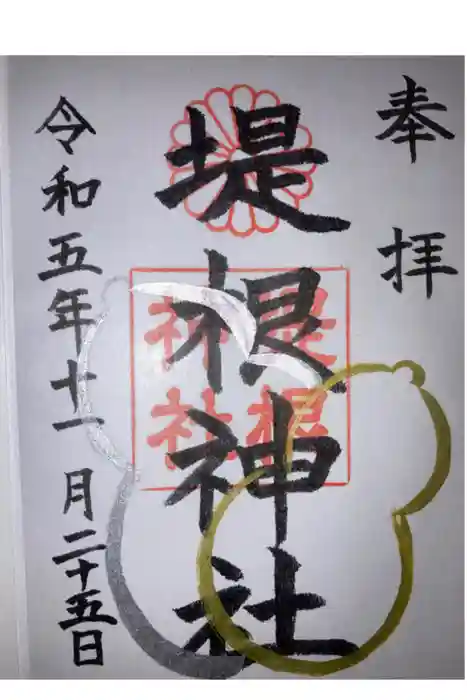 奉拝
堤根神社
堤根
神社
令和五年十一月二十五日